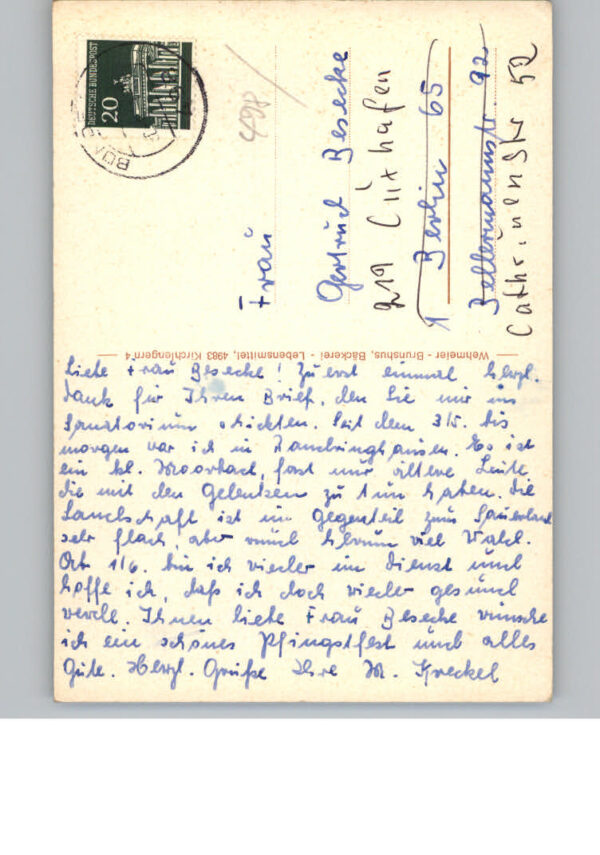 DEUTSCHE BUNDESPOST
20
498
Frau
Gertrud Besecke
219 Cuxhafen
1 Berlin 65
Bellermannstr. 92
Cathrinenstr 52
Wehmeier - Brunshus, Bäckerei - Lebensmittel, 4983 Kirchlengern 4
Liebe Frau Besecke! Zuerst einmal herzl.
Dank für Ihren Brief, den Sie mir ins
Sanatorium schickten. Seit dem 3/5. bis
morgen war ich in Randringhausen. Es ist
ein kl. Moorbad, fast nur ältere Leute
die mit den Gelenken zu tun haben. Die
Landschaft ist im Gegenteil zum Sauerland
sehr flach, aber rund herum viel Wald.
Ab 1/6. bin ich wieder im Dienst und
hoffe ich, daß ich doch wieder gesund
werde. Ihnen liebe Frau Besecke wünsche
ich ein schönes Pfingstfest und alles
Gute. Herzl. Grüße Ihre M. Kreckel